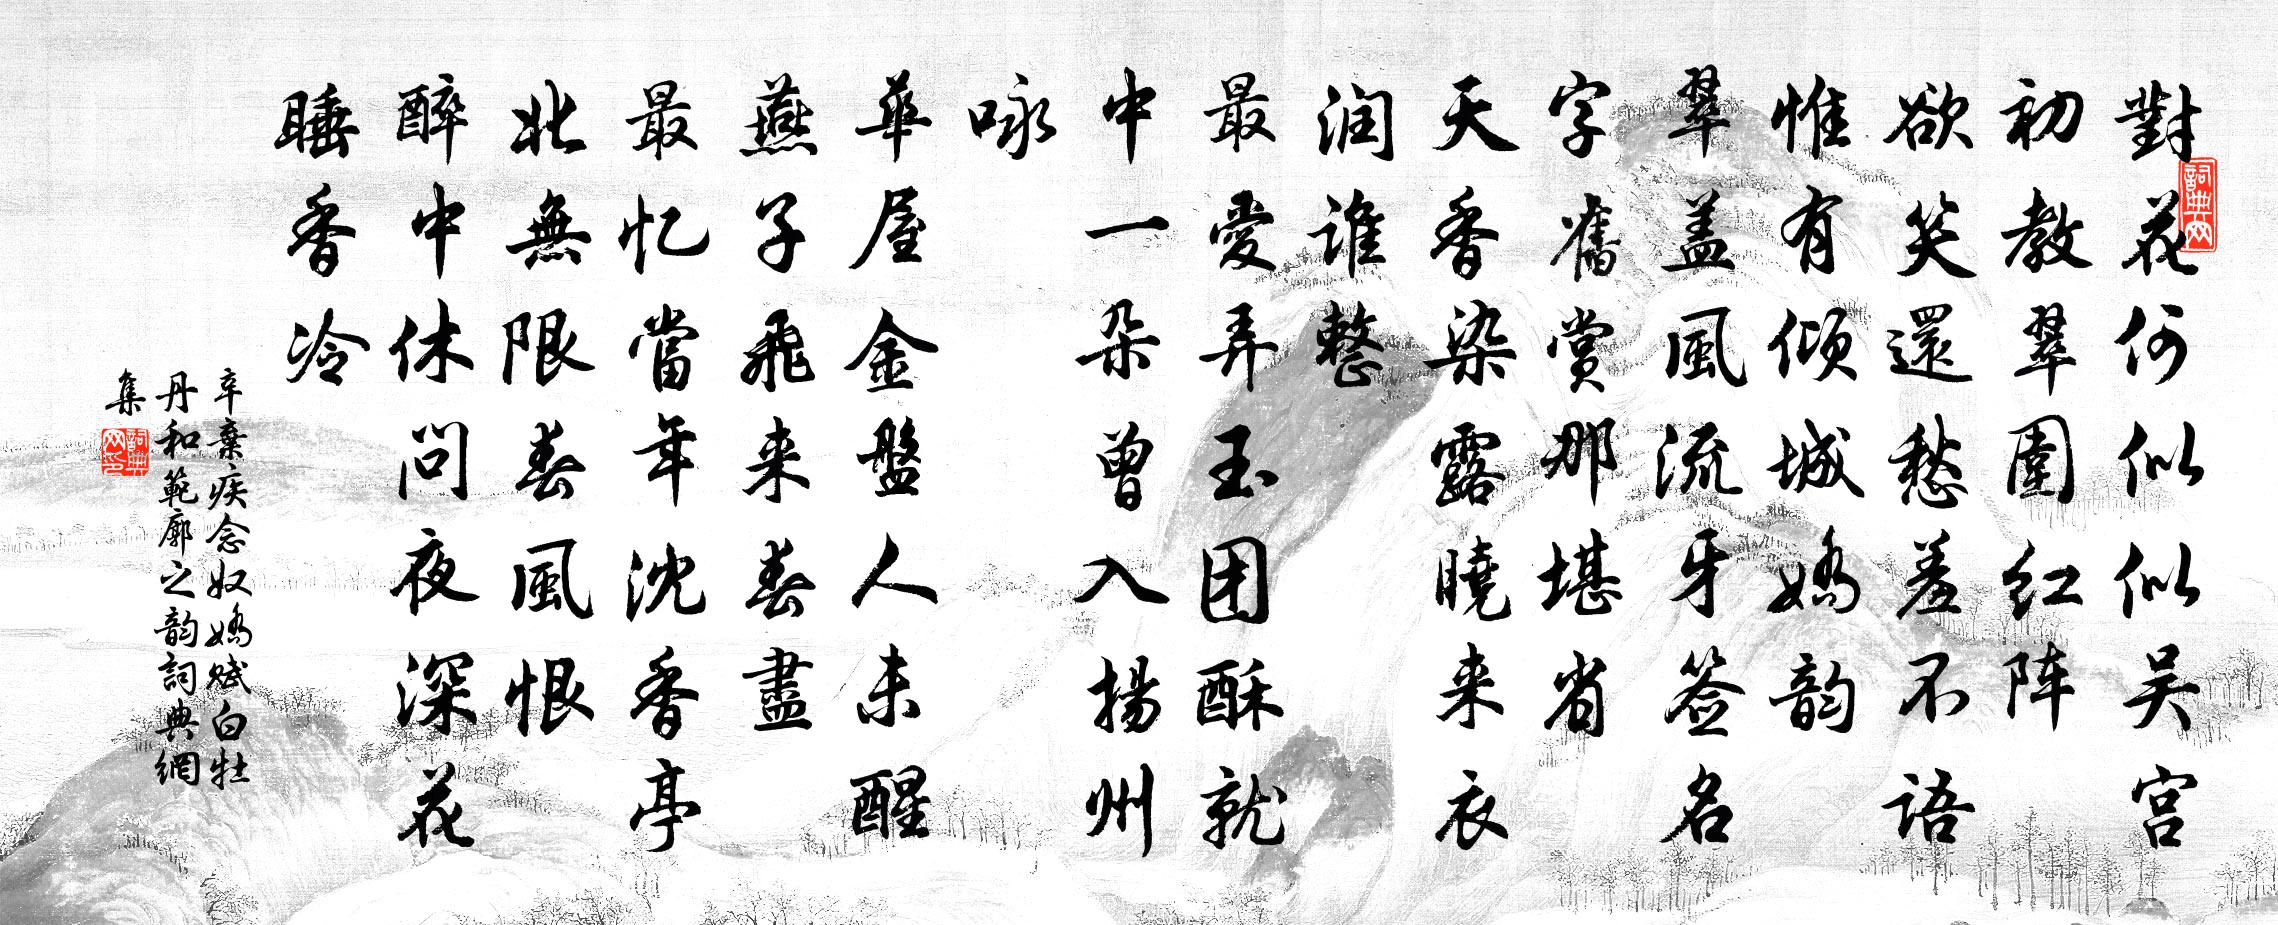 對花何似似吴宫
初教翠圍红阵
欲笑還愁羞不语
惟有倾城娇韵
翠盖風流牙签名
字舊赏那堪省
天香染露曉来衣
润谁整
最愛弄玉团酥就
中一朵曾入揚州
咏
華屋金盤人未醒
燕子飛来春盡
最忆當年沈香亭
北無限春風恨
醉中休问夜深花
睡香冷
辛棄疾念奴娇赋白牡
丹和範廓之韵詞典網
集
詞典网
詞典网印